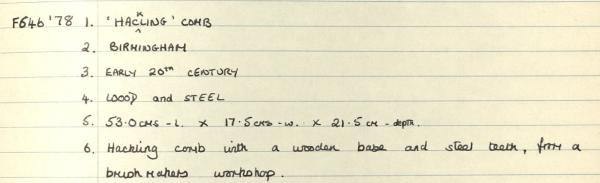 F646'78 1. 'HACKLING' COMB
2. BIRMINGHAM
3. EARLY 20TH CENTURY
4. WOOD and STEEL
5. 53.0 CMS - L. X 17.5 CMS - W. X 21.5 CM - depth.
6. Hackling comb with a wooden base and steel teeth, from a
brush makers workshop.